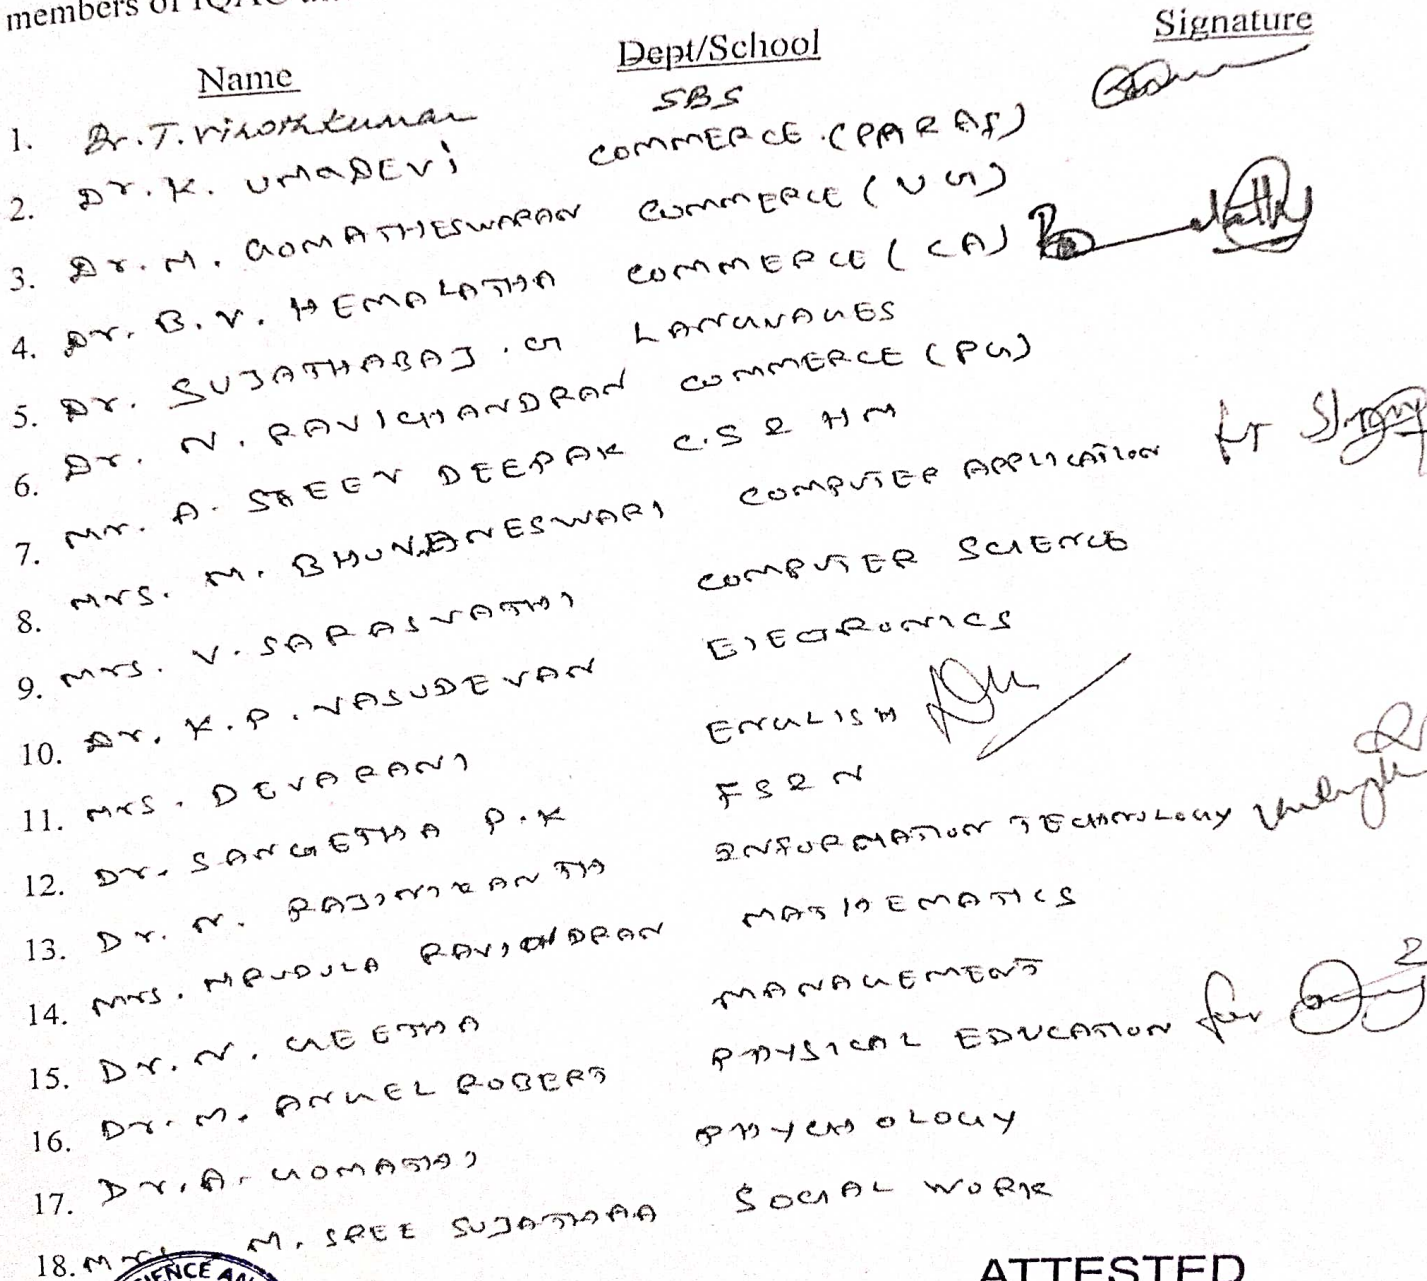 members of IQAC
Name Dept/School Signature
1. Dr. T. Vinothkumar SBS
2. Dr. K. UMADEVi COMMERCE (PA & AF)
3. Dr. M. GOMATHESWARAN COMMERCE (UG)
4. Dr. B.V. HEMALATHA COMMERCE (CA)
5. Dr. SUJATHABAJ. G LANGUAGES
6. Dr. N. RAVICHANDRAN COMMERCE (PG)
7. Mr. A. SREEN DEEPAK C.S & HM
8. Mrs. M. BHUVANESWARI COMPUTER APPLICATION for
9. Mrs. V. SARASVATHI COMPUTER SCIENCE
10. Dr. K.P. VASUDEVAN ELECTRONICS
11. Mrs. DEVARANI ENGLISH
12. Dr. SANGETHA P.K FS & N
13. Dr. N. RAJINIKANTH INFORMATION TECHNOLOGY
14. Mrs. MRUDULA RAVINDRAN MATHEMATICS
15. Dr. N. GEETHA MANAGEMENT
16. Dr. M. ANGEL ROBERT PHYSICAL EDUCATION for
17. Dr. A. GOMATHI PHYCHOLOGY
18. M. SREE SUJATHAA SOCIAL WORK
IENCE AN
ATTESTED